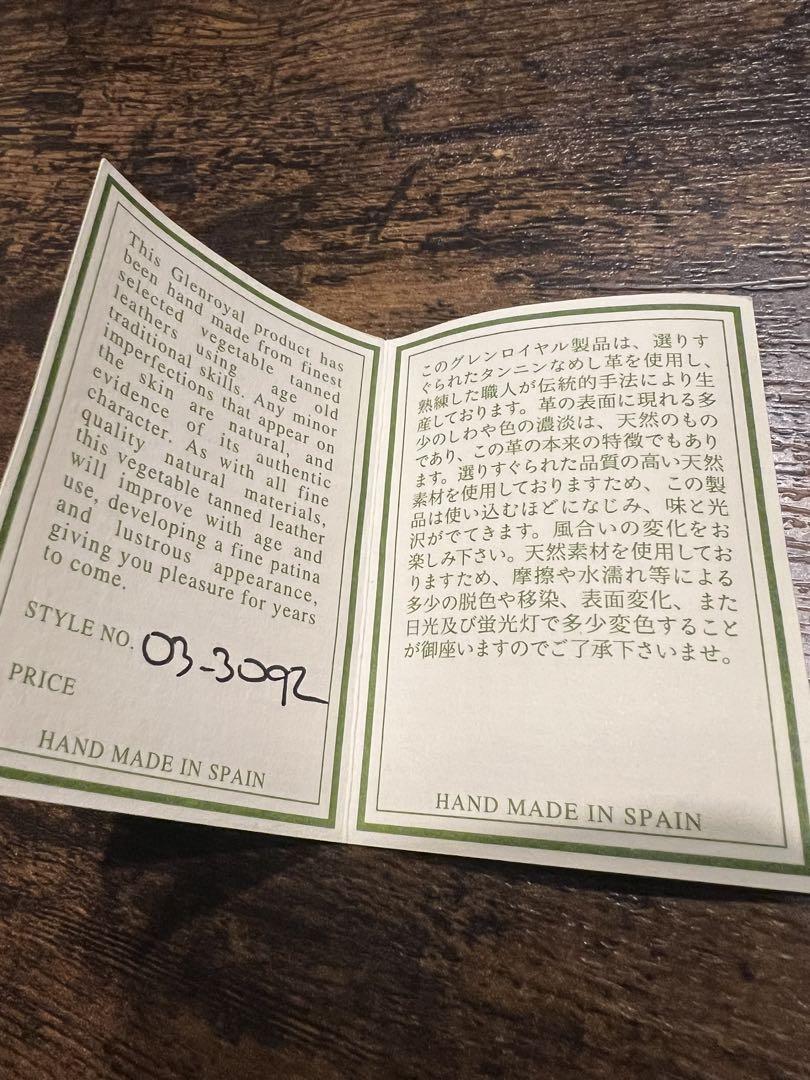 This Glenroyal product has
been hand made from finest
selected vegetable tanned
leathers using age old
traditional skills. Any minor
imperfections that appear on
the skin are natural, and
evidence of its authentic
character. As with all fine
quality natural materials,
this vegetable tanned leather
will improve with age and
use, developing a fine patina
and lustrous appearance,
giving you pleasure for years
to come.
STYLE NO. 03-3092
PRICE
HAND MADE IN SPAIN
このグレンロイヤル製品は、選りす
ぐられたタンニンなめし革を使用し、
熟練した職人が伝統的手法により生
産しております。革の表面に現れる多
少のしわや色の濃淡は、天然のもの
であり、この革の本来の特徴でもあり
ます。選りすぐられた品質の高い天然
素材を使用しておりますため、この製
品は使い込むほどになじみ、味と光
沢がでてきます。風合いの変化をお
楽しみ下さい。天然素材を使用してお
りますため、摩擦や水濡れ等による
多少の脱色や移染、表面変化、また
日光及び蛍光灯で多少変色すること
が御座いますのでご了承下さいませ。
HAND MADE IN SPAIN